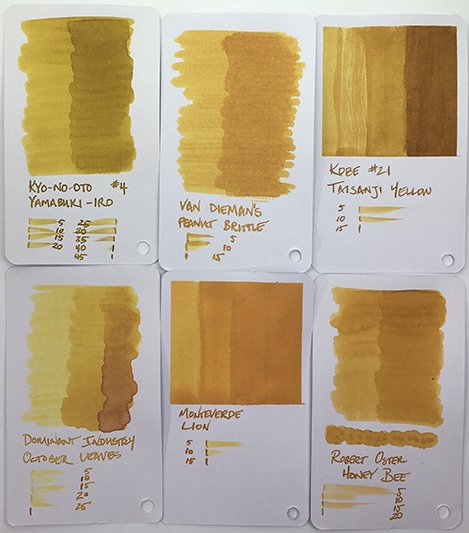 KYO-NO-OTO #4
YAMABUKI-IRO
5 25
10 30
15 35
20 40
45
VAN DIEMAN'S
PEANUT BRITTLE
5
10
15
KOBE #21
TAISANJI YELLOW
5
10
15
DOMINANT INDUSTRY
OCTOBER LEAVES
5
10
15
20
25
MONTEVERDE
LION
5
10
15
ROBERT OSTER
HONEY BEE
5
10
15
20